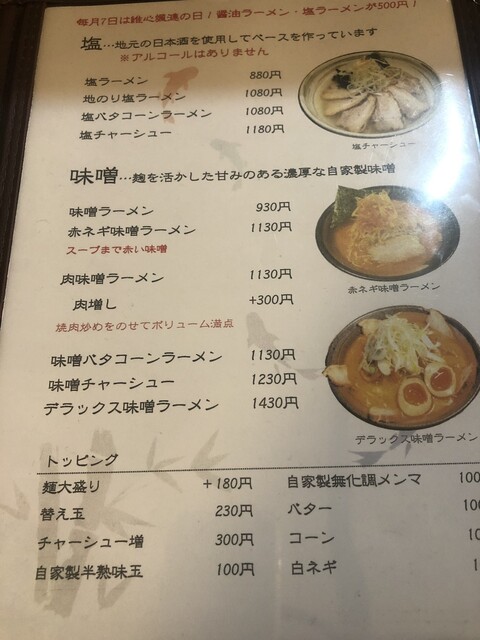 毎月7日は維心飄連の日！醤油ラーメン・塩ラーメンが500円！
塩…地元の日本酒を使用してベースを作っています
※アルコールはありません
塩ラーメン 880円
地のり塩ラーメン 1080円
塩バタコーンラーメン 1080円
塩チャーシュー 1180円
塩チャーシュー
味噌…麹を活かした甘みのある濃厚な自家製味噌
味噌ラーメン 930円
赤ネギ味噌ラーメン 1130円
スープまで赤い味噌
赤ネギ味噌ラーメン
肉味噌ラーメン 1130円
肉増し +300円
焼肉炒めをのせてボリューム満点
味噌バタコーンラーメン 1130円
味噌チャーシュー 1230円
デラックス味噌ラーメン 1430円
デラックス味噌ラーメン
トッピング
麺大盛り +180円
替え玉 230円
チャーシュー増 300円
自家製半熟味玉 100円
自家製無化調メンマ 100
バター 100
コーン 10
白ネギ 1